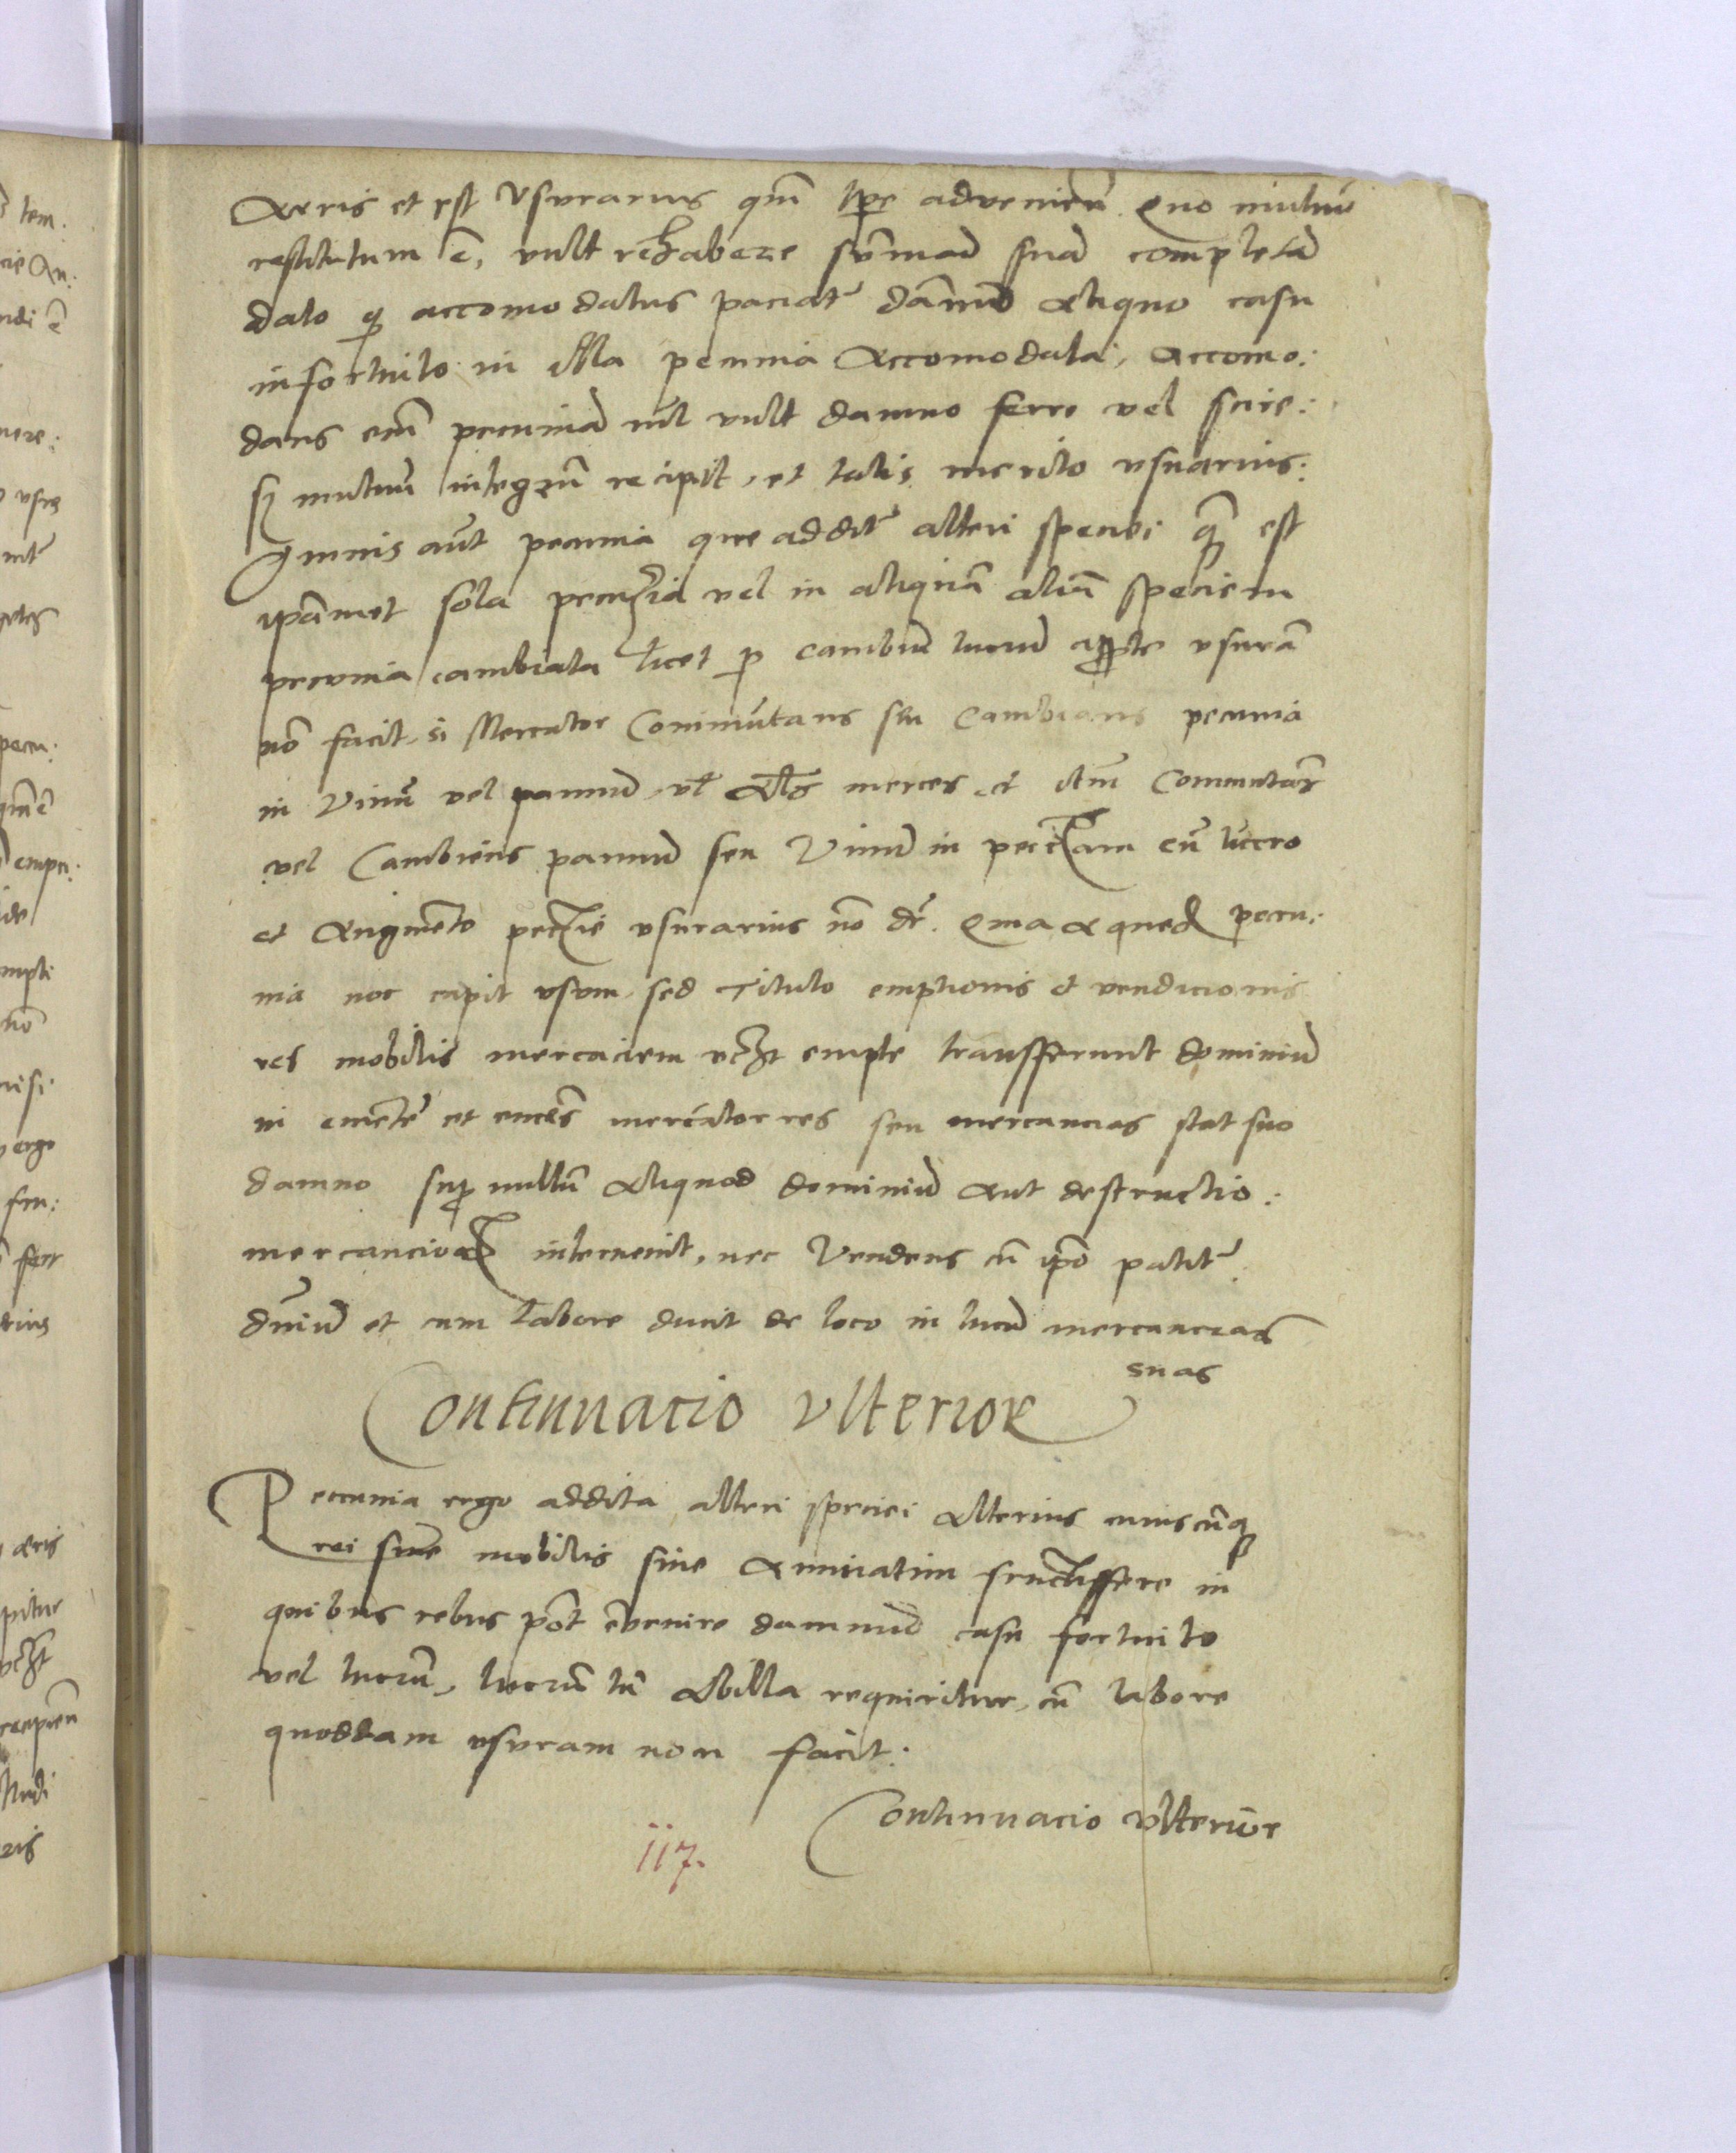 Aeris et est Vsurarius qm̄ tp̄e advenien̄ Quo mutuū
restitutum ē, vult rehabere sūmam suā completā
dato q̄ accomodatus paciat̄ dām̄ aliquo casu
infortuito in illa pecunia Accomodata, Accomo:
dans em̄ pecuniā nil vult damno ferre vel scire:
sȝ mutuū integrum recipit, et talis merito vsuarius:
Omnis aūt pecunia que addit̄ alteri speciei quā est
ipāmet sola pecunia vel in aliquā aliā speciem
pecunia cambiata licet p cambiū lucrū aꝑte vsurā
nō facit, si Mercator Commutans seu Cambians pecunia
in Vinū vel pannū, vl̄ al̄s merces et itm̄ Commutās
vel Cambiens pannū seu Vinū in pecuniam cū lucro
et Augmēto pecunie vsurarius nō dr̄. Quia aqued pecu:
nia noc capit vsum, sed Titulo emptionis et vendicionis
res mobilis mercaciem vcȝt empte transfferunt dominiū
in emētē et emēs mercator res seu mercancias stat suo
damno sup nullū Aliquod dominiū Aut destructio:
mercanciarum intervenit, nec Vendens cū ip̄o patit̄
dn̄iū et cum labore ducit de loco in locū mercancias
suas
Continuacio Vlterior
Peccunia ergo addita alteri speciei Alterius cuiuscūq
rei siue mobilis siue Annuatim fructiffere in
quibus rebus pōt ēvenire damnū casu fortuito
vel lucrū, lucrū tn̄ Ab illa requiritur, cū labore
quoddam vsuram non facit:
Continuacio Vlterior
117.